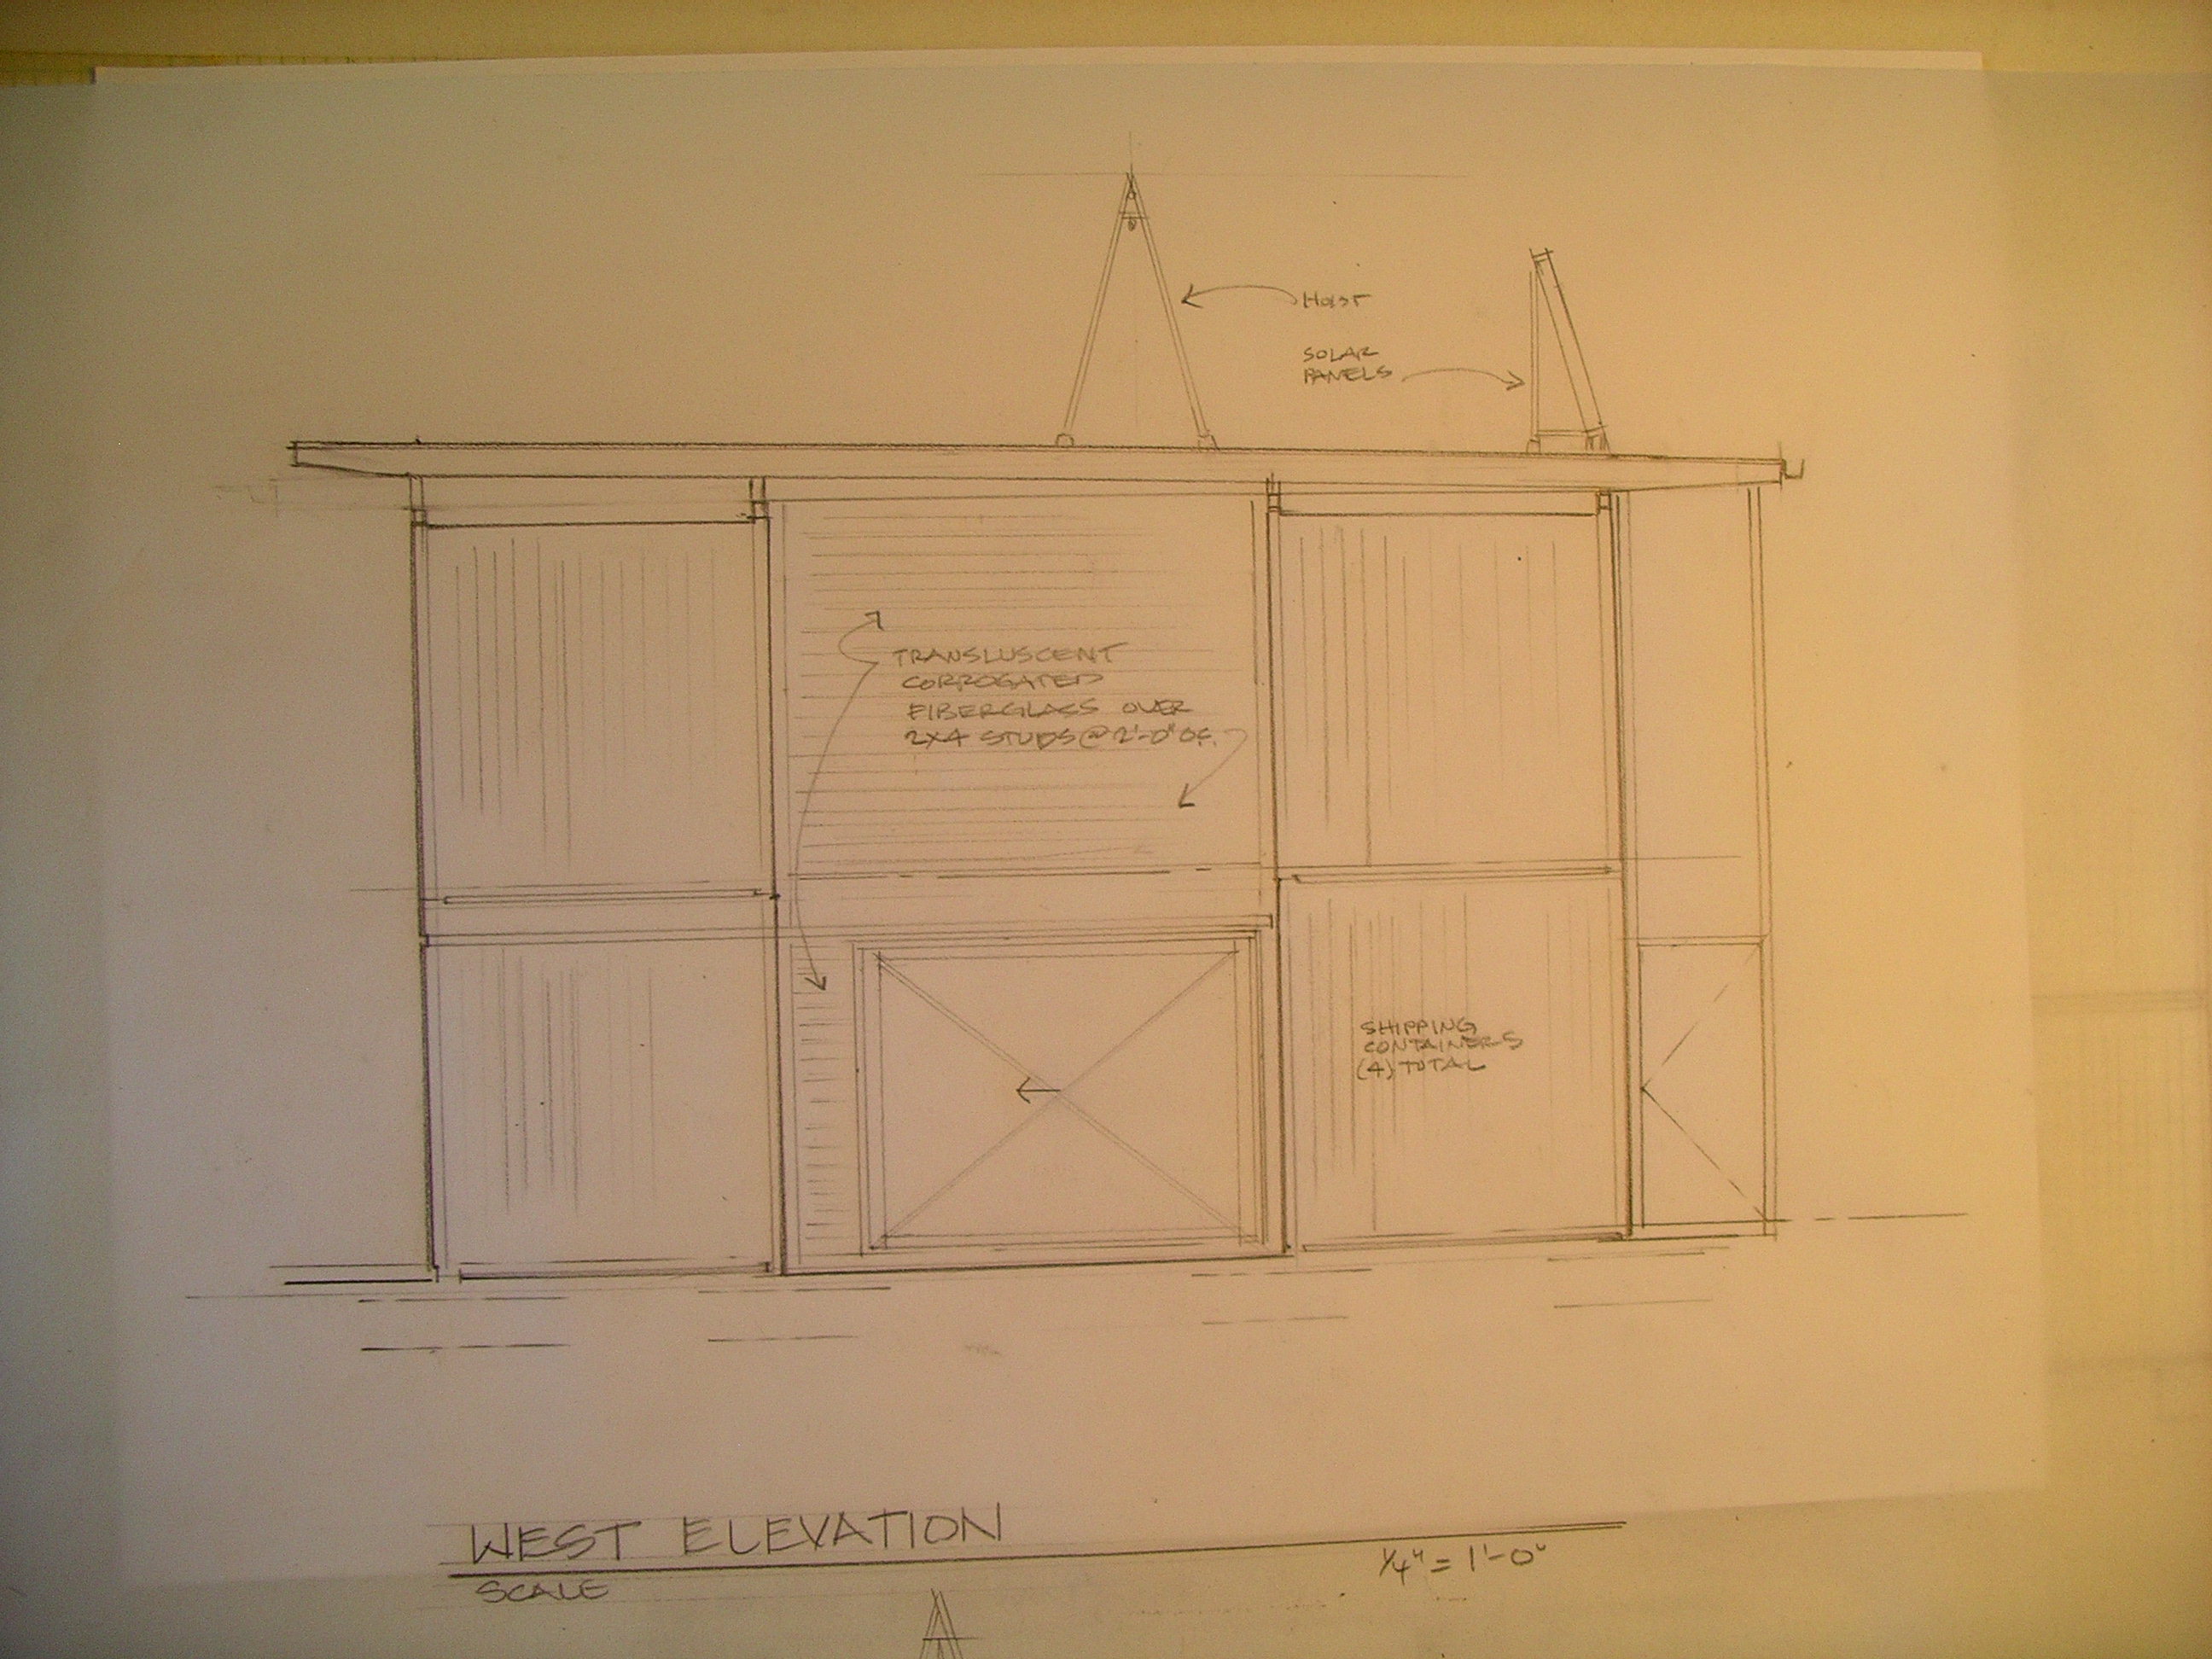 HOIST
SOLAR
PANELS
TRANSLUSCENT
CORROGATED
FIBERGLASS OVER
2X4 STUDS @ 2'-0" O.C.
SHIPPING
CONTAINERS
(4) TOTAL
WEST ELEVATION
SCALE
1/4" = 1'-0"